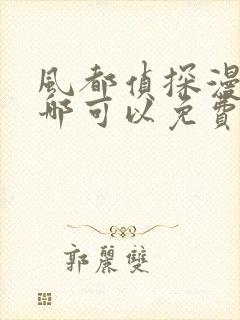 風都偵探漫
哪可以免費
郭麗雙